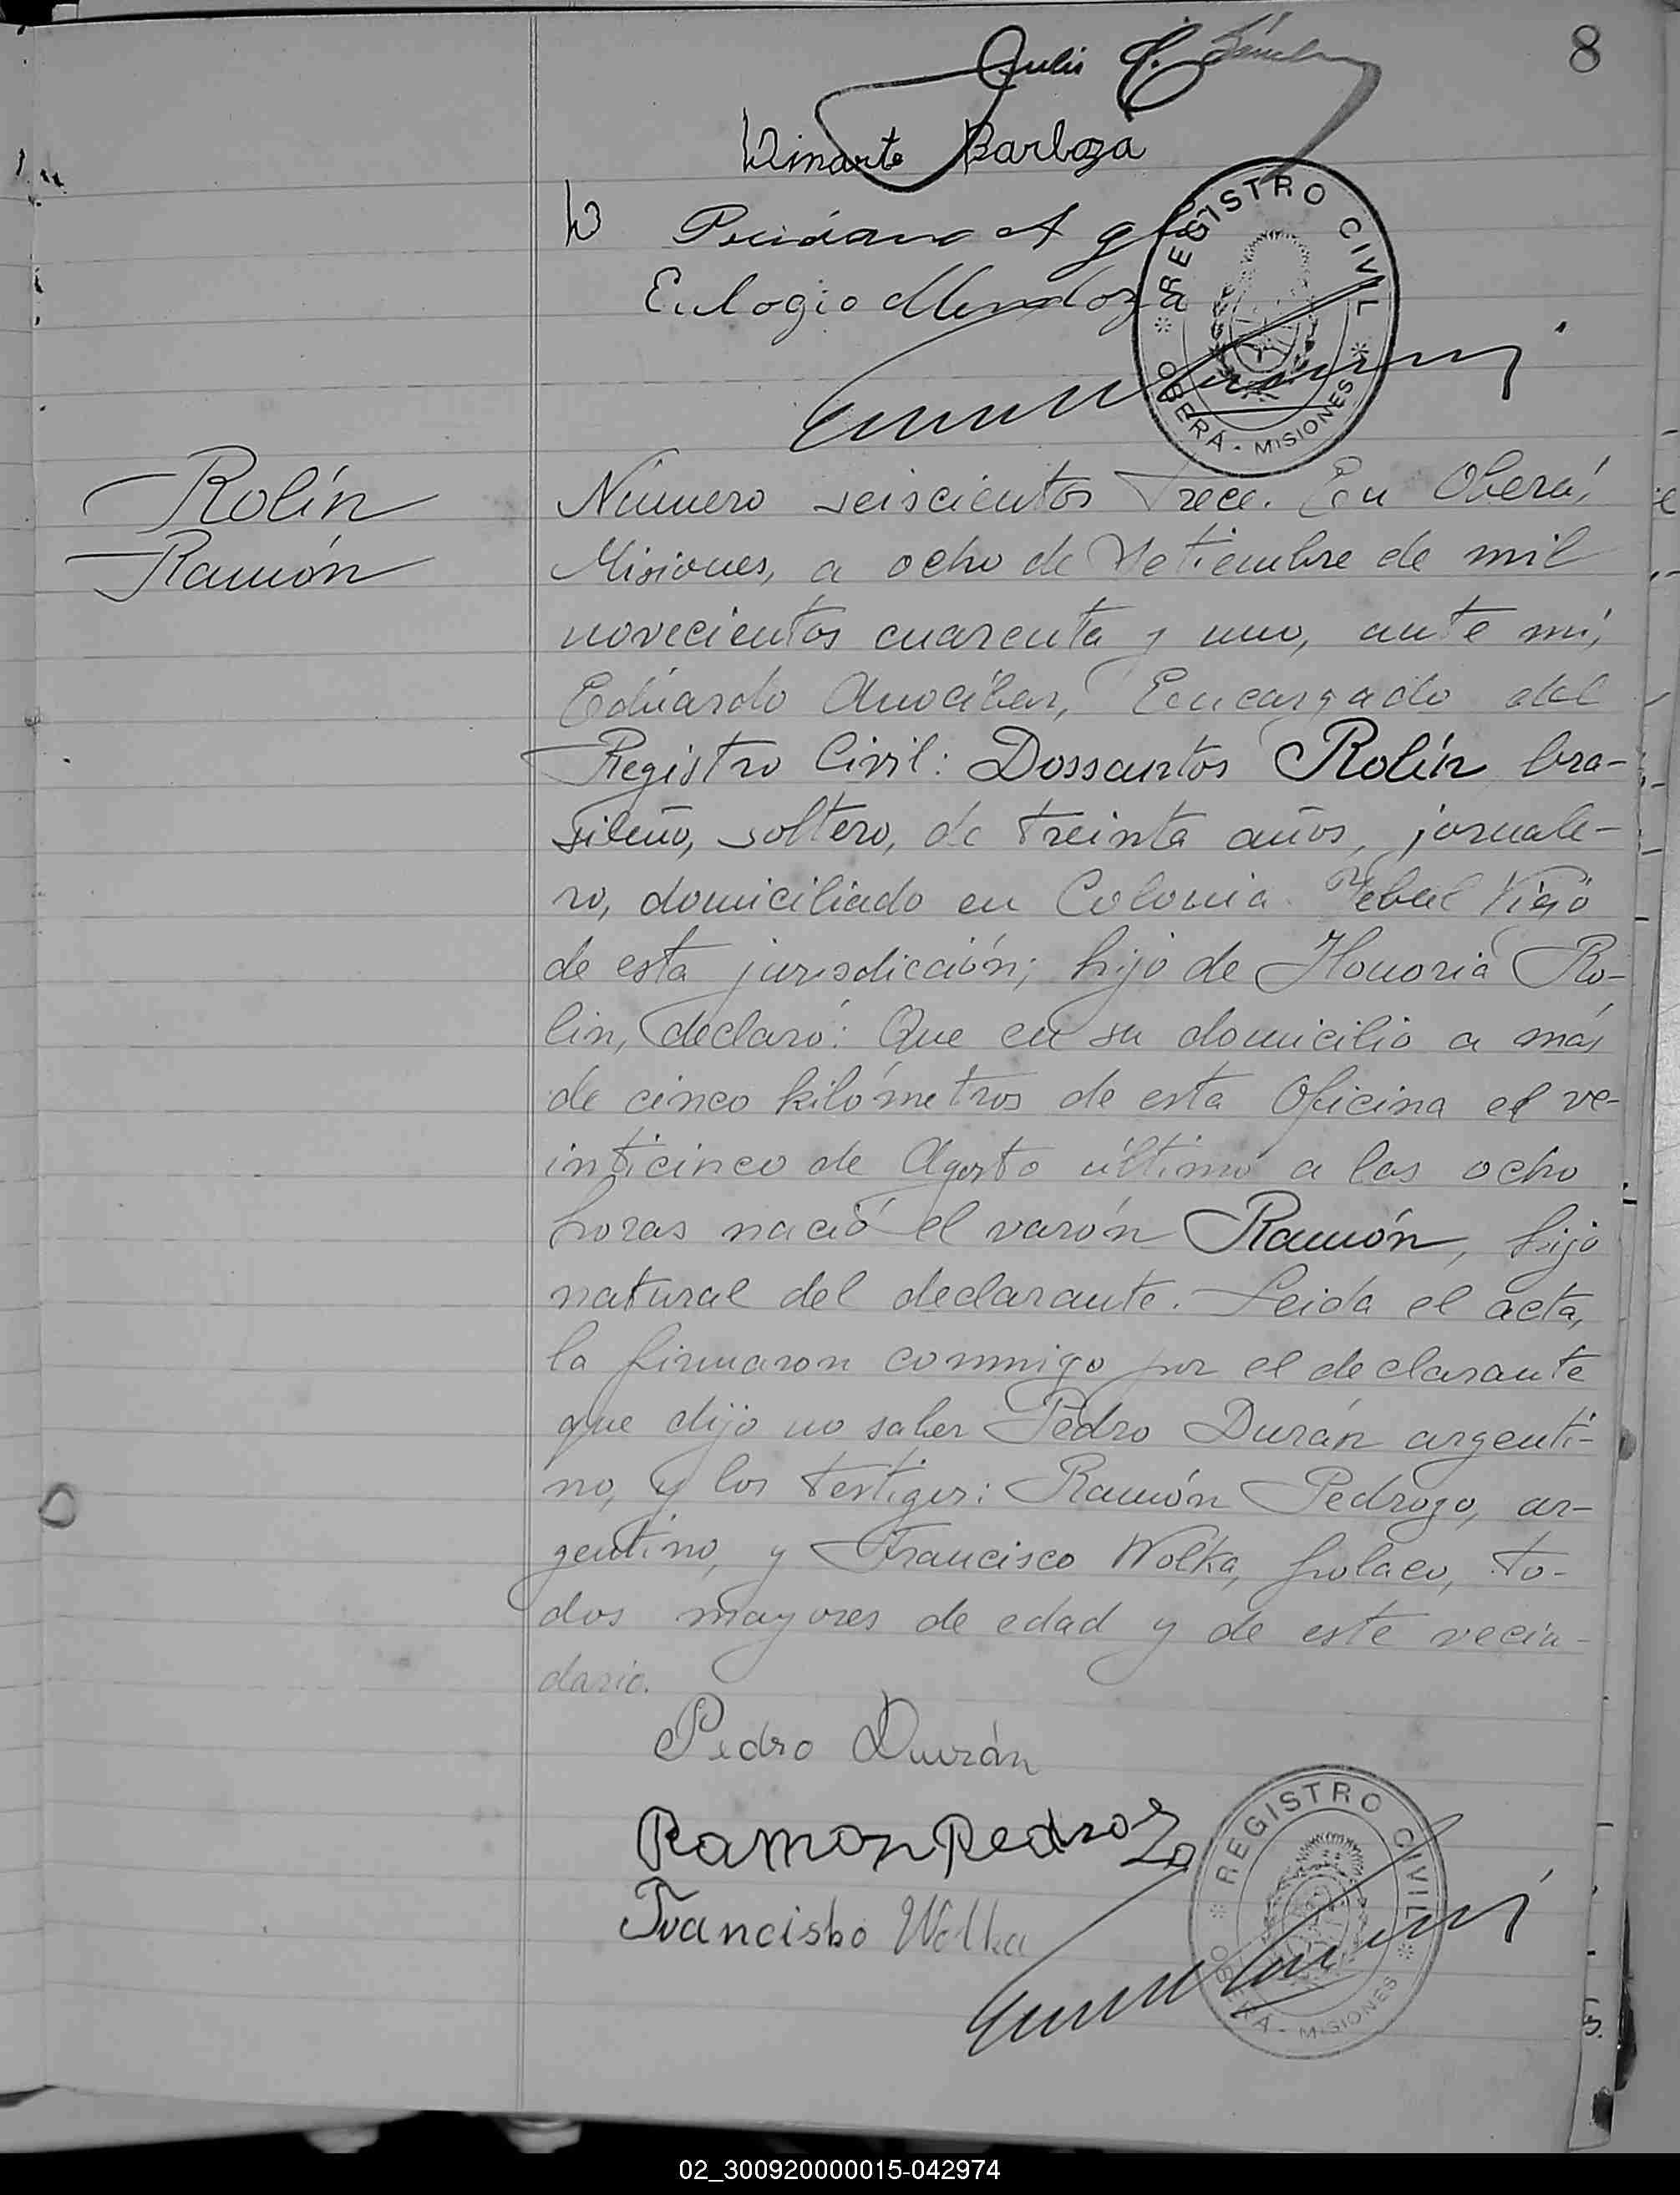 8
Barboza
Eulogio Mendoza
REGISTRO CIVIL
OBERÁ - MISIONES
Rolín
Ramón
Número seiscientos trece. En Oberá,
Misiones, a ocho de Setiembre de mil
novecientos cuarenta y uno, ante mí,
Eduardo Encargado del
Registro Civil: Dossantos Rolín, bra-
sileño, soltero, de treinta años, jornale-
ro, domiciliado en Colonia Viejo
de esta jurisdicción; hijo de Honoria Ro-
lin, declaró: Que en su domicilio a más
de cinco kilómetros de esta Oficina el ve-
inticinco de Agosto último a las ocho
horas nació el varón Ramón, hijo
natural del declarante. Leida el acta,
la firmaron conmigo por el declarante
que dijo no saber Pedro Durán argenti-
no, y los testigos: Ramón Pedrozo, ar-
gentino, y Francisco Wolka, polaco, to-
dos mayores de edad y de este vecin-
dario.
Pedro Durán
Ramon Pedrozo
Francisko Wolka
REGISTRO CIVIL
OBERÁ - MISIONES
02_300920000015-042974